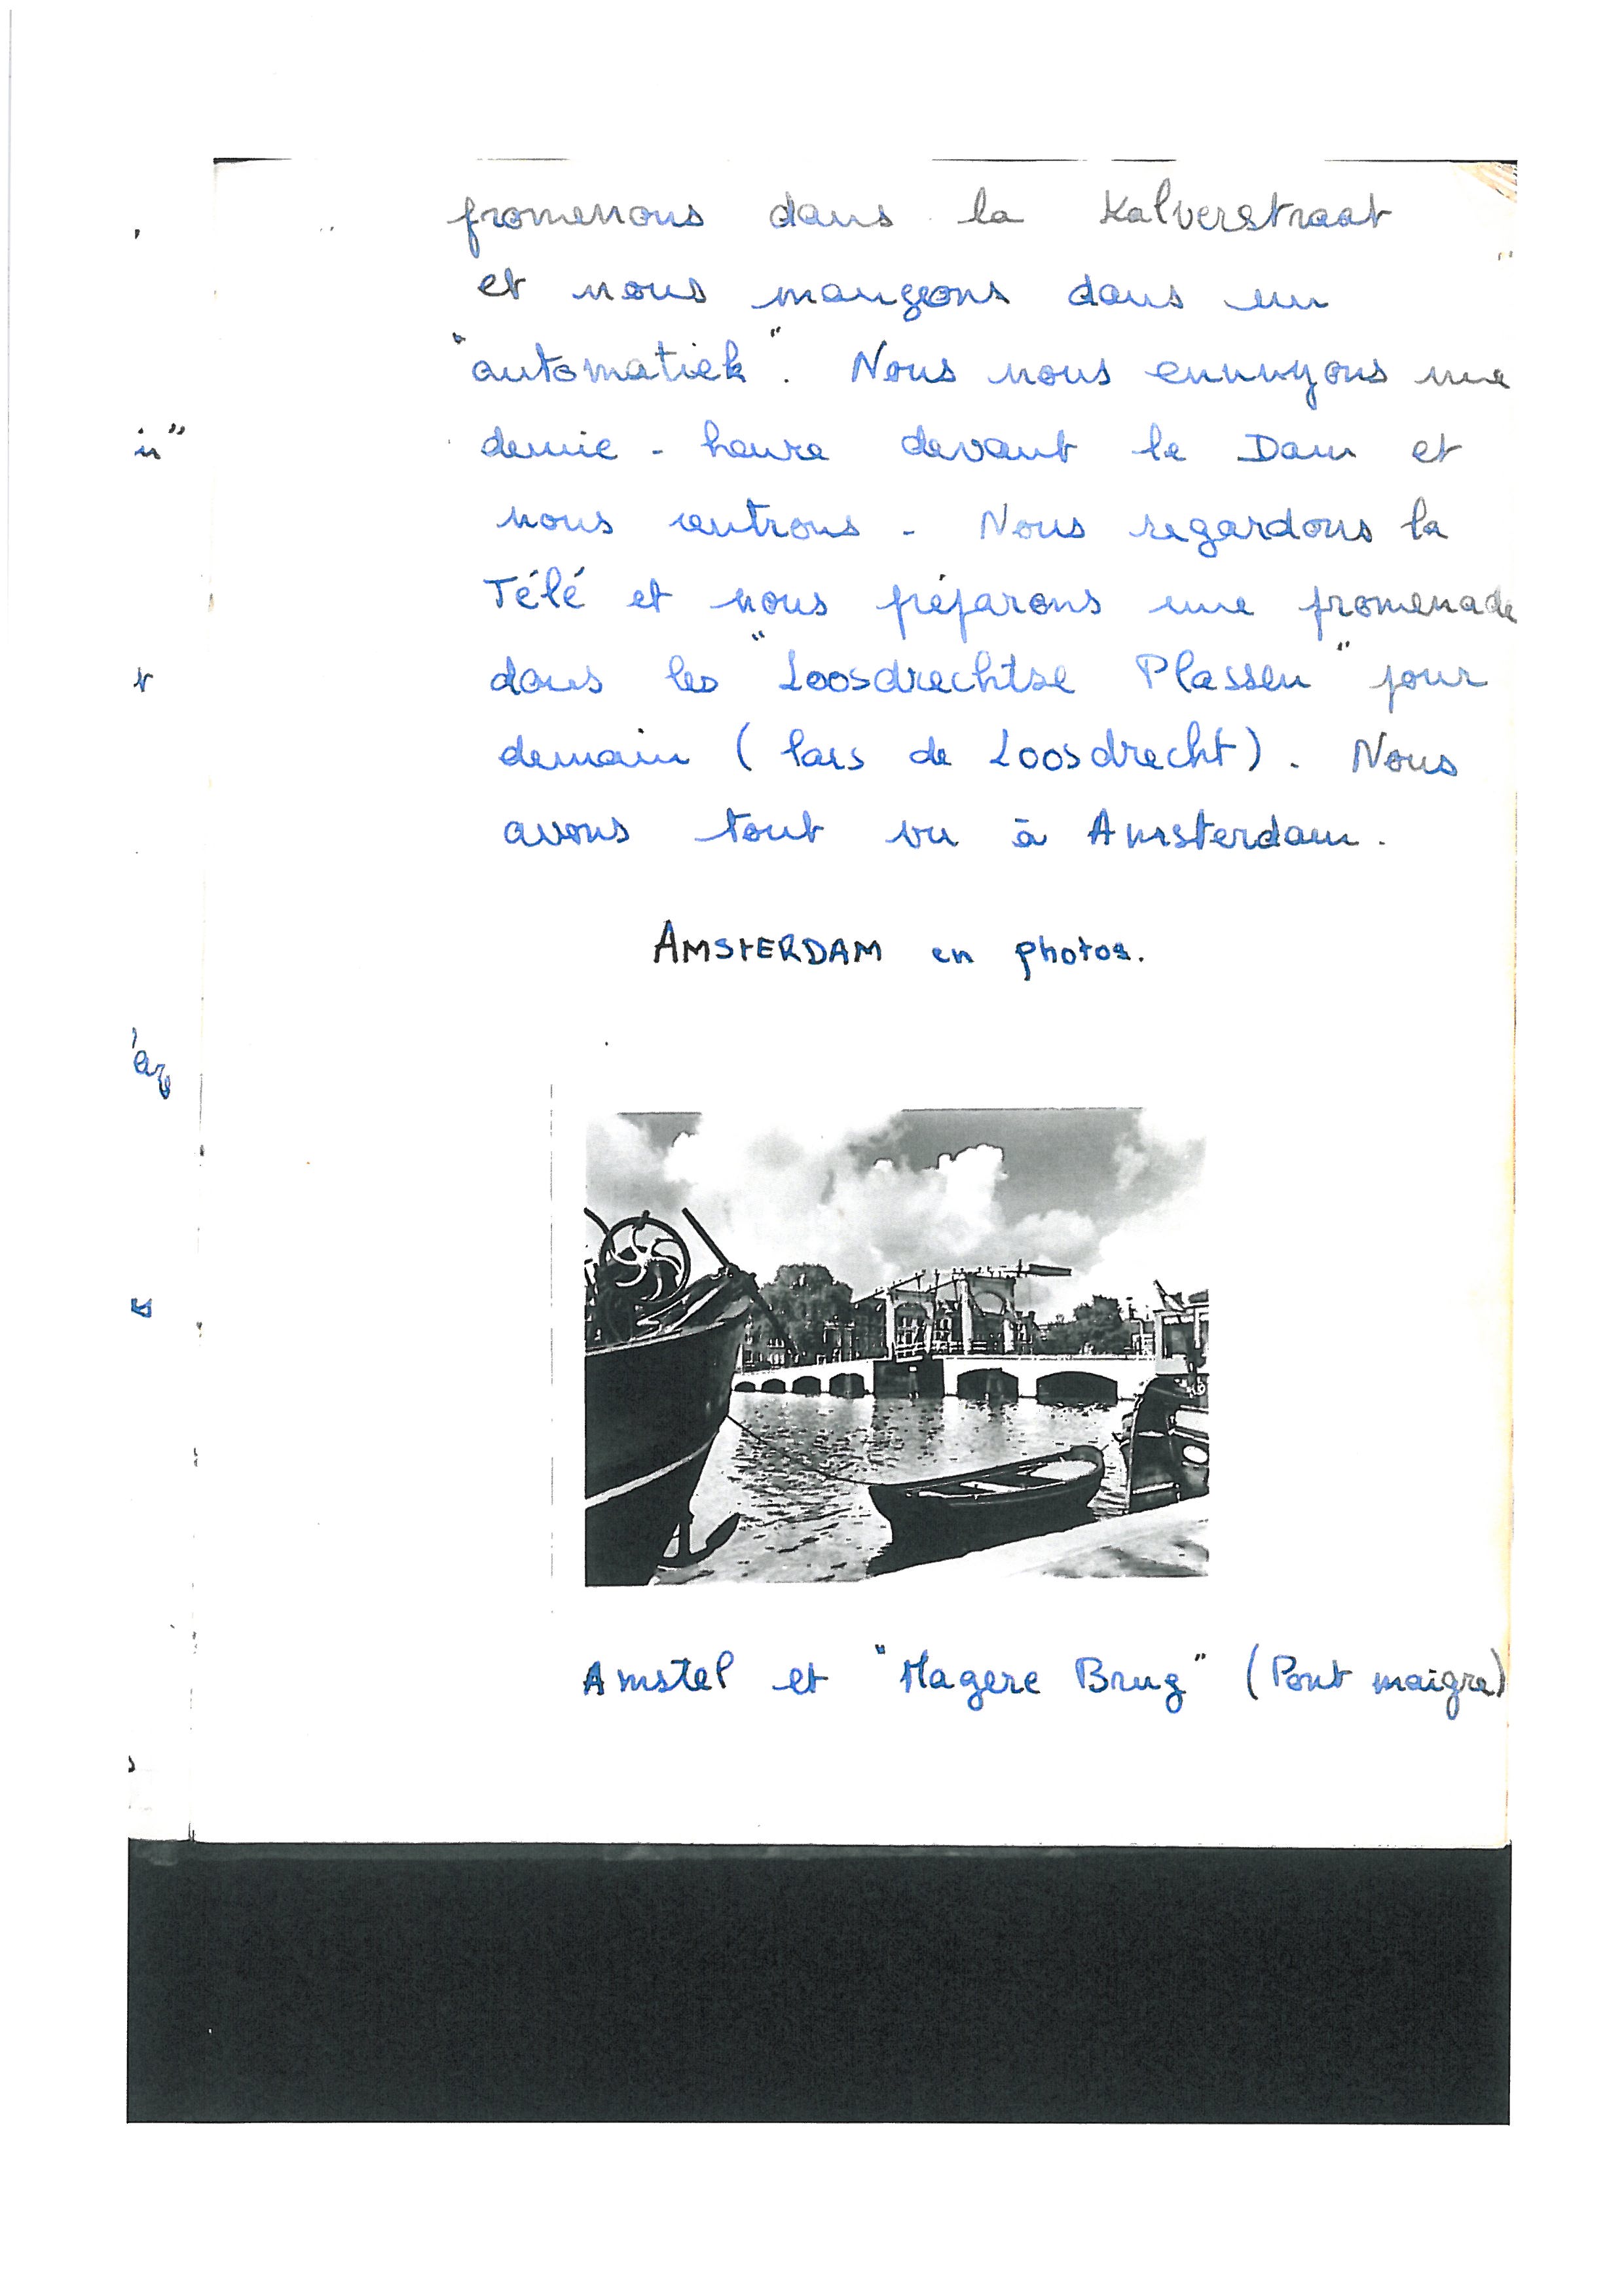 promenons dans la Kalverstraat
et nous mangeons dans un
"automatiek". Nous nous ennuyons une
demie-heure devant le Dam et
nous rentrons - Nous regardons la
Télé et nous préparons une promenade
dans les "Loosdrechtse Plassen" pour
demain (lacs de Loosdrecht). Nous
avons tout vu à Amsterdam.
AMSTERDAM en photos.
Amstel et "Magere Brug" (Pont maigre)